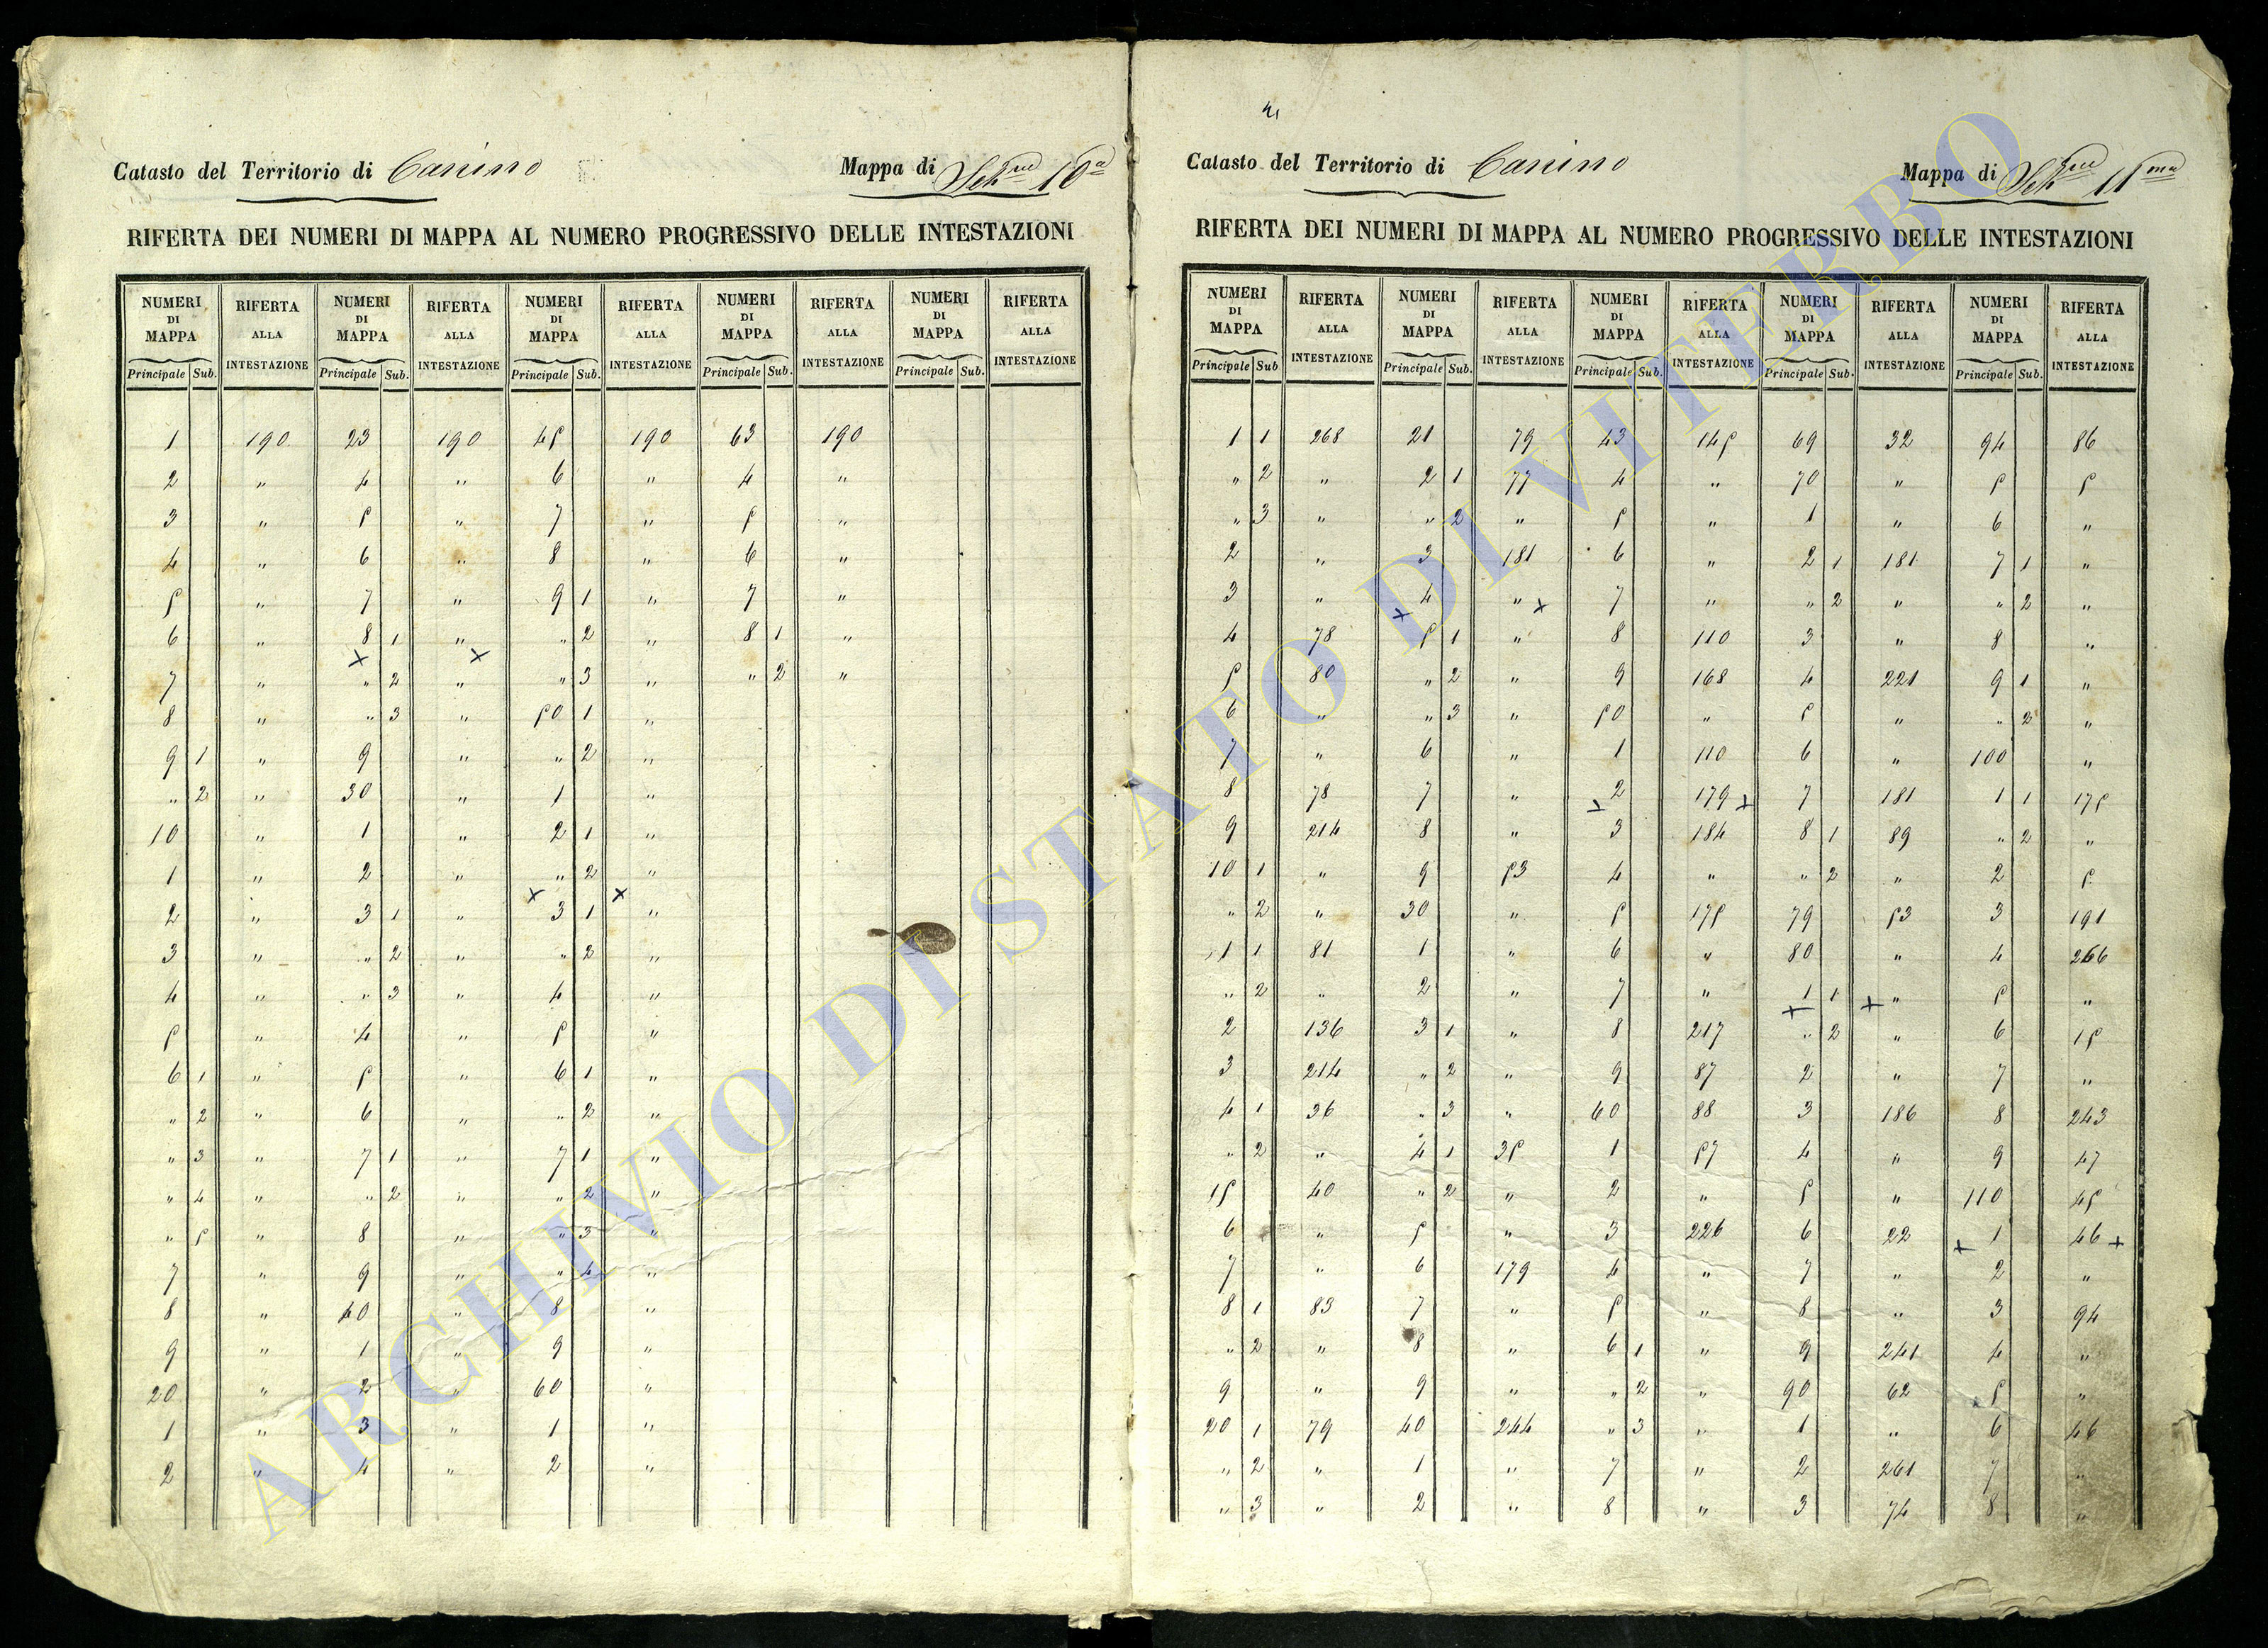 Catasto del Territorio di Canino Mappa di Sez.ne 10a
RIFERTA DEI NUMERI DI MAPPA AL NUMERO PROGRESSIVO DELLE INTESTAZIONI
NUMERI DI MAPPA RIFERTA ALLA INTESTAZIONE NUMERI DI MAPPA RIFERTA ALLA INTESTAZIONE NUMERI DI MAPPA RIFERTA ALLA INTESTAZIONE NUMERI DI MAPPA RIFERTA ALLA INTESTAZIONE NUMERI DI MAPPA RIFERTA ALLA INTESTAZIONE
Principale Sub. Principale Sub. Principale Sub. Principale Sub. Principale Sub.
1 190 23 190 45 190 63 190
2 " 4 " 6 " 4 "
3 " 5 " 7 " 5 "
4 " 6 " 8 " 6 "
5 " 7 " 9 1 " 7 "
6 " 8 1 " " 2 " 8 1 "
7 " × " 2 × " " 3 " " 2 "
8 " " 3 " 50 1 "
9 1 " 9 " " 2 "
" 2 " 30 " 1 "
10 " 1 " 2 1 "
1 " 2 " " 2 "
2 " 3 1 " × 3 1 × "
3 " " 2 " " 2 "
4 " " 3 " 4 "
5 " 4 " 5 "
6 1 " 5 " 6 1 "
" 2 " 6 " " 2 "
" 3 " 7 1 " 7 1 "
" 4 " " 2 " " 2 "
" 5 " 8 " " 3 "
7 " 9 " " 4 "
8 " 40 " 8 "
9 " 1 " 9 "
20 " 2 " 60 "
1 " 3 " 1 "
2 " 4 " 2 "
Catasto del Territorio di Canino Mappa di Sez.ne 11ma
RIFERTA DEI NUMERI DI MAPPA AL NUMERO PROGRESSIVO DELLE INTESTAZIONI
NUMERI DI MAPPA RIFERTA ALLA INTESTAZIONE NUMERI DI MAPPA RIFERTA ALLA INTESTAZIONE NUMERI DI MAPPA RIFERTA ALLA INTESTAZIONE NUMERI DI MAPPA RIFERTA ALLA INTESTAZIONE NUMERI DI MAPPA RIFERTA ALLA INTESTAZIONE
Principale Sub Principale Sub. Principale Sub. Principale Sub. Principale Sub.
1 1 268 21 79 43 145 69 32 94 86
" 2 " 2 1 77 4 " 70 " 5 5
" 3 " " 2 " 5 " 1 " 6 "
2 " 3 181 6 " 2 1 181 7 1 "
3 " × 4 " × 7 " " 2 " " 2 "
4 78 5 1 " 8 110 3 " 8 "
5 80 " 2 " 9 168 4 221 9 1 "
6 " " 3 " 50 " 5 " " 2 "
7 " 6 " 1 110 6 " 100 "
8 78 7 " × 2 179 × 7 181 1 1 175
9 214 8 " 3 184 8 1 89 " 2 "
10 1 " 9 53 4 " " 2 " 2 5
" 2 " 30 " 5 175 79 53 3 191
1 1 81 1 " 6 " 80 " 4 266
" 2 " 2 " 7 " × 1 1 × " 5 "
2 136 3 1 " 8 217 " 2 " 6 15
3 214 " 2 " 9 87 2 " 7 "
4 1 36 " 3 " 60 88 3 186 8 243
" 2 " 4 1 35 1 57 4 " 9 47
15 40 " 2 " 2 " 5 " 110 45
6 " 5 " 3 226 6 22 × 1 46 ×
7 " 6 179 4 " 7 " 2 "
8 1 83 7 " 5 " 8 " 3 94
" 2 " 8 " 6 1 " 9 241 4 "
9 " 9 " " 2 " 90 62 5 "
20 1 79 40 244 " 3 " 1 " 6 46
" 2 " 1 " 7 " 2 261 7 "
" 3 " 2 " 8 " 3 74 8 "
ARCHIVIO DI STATO DI VITERBO